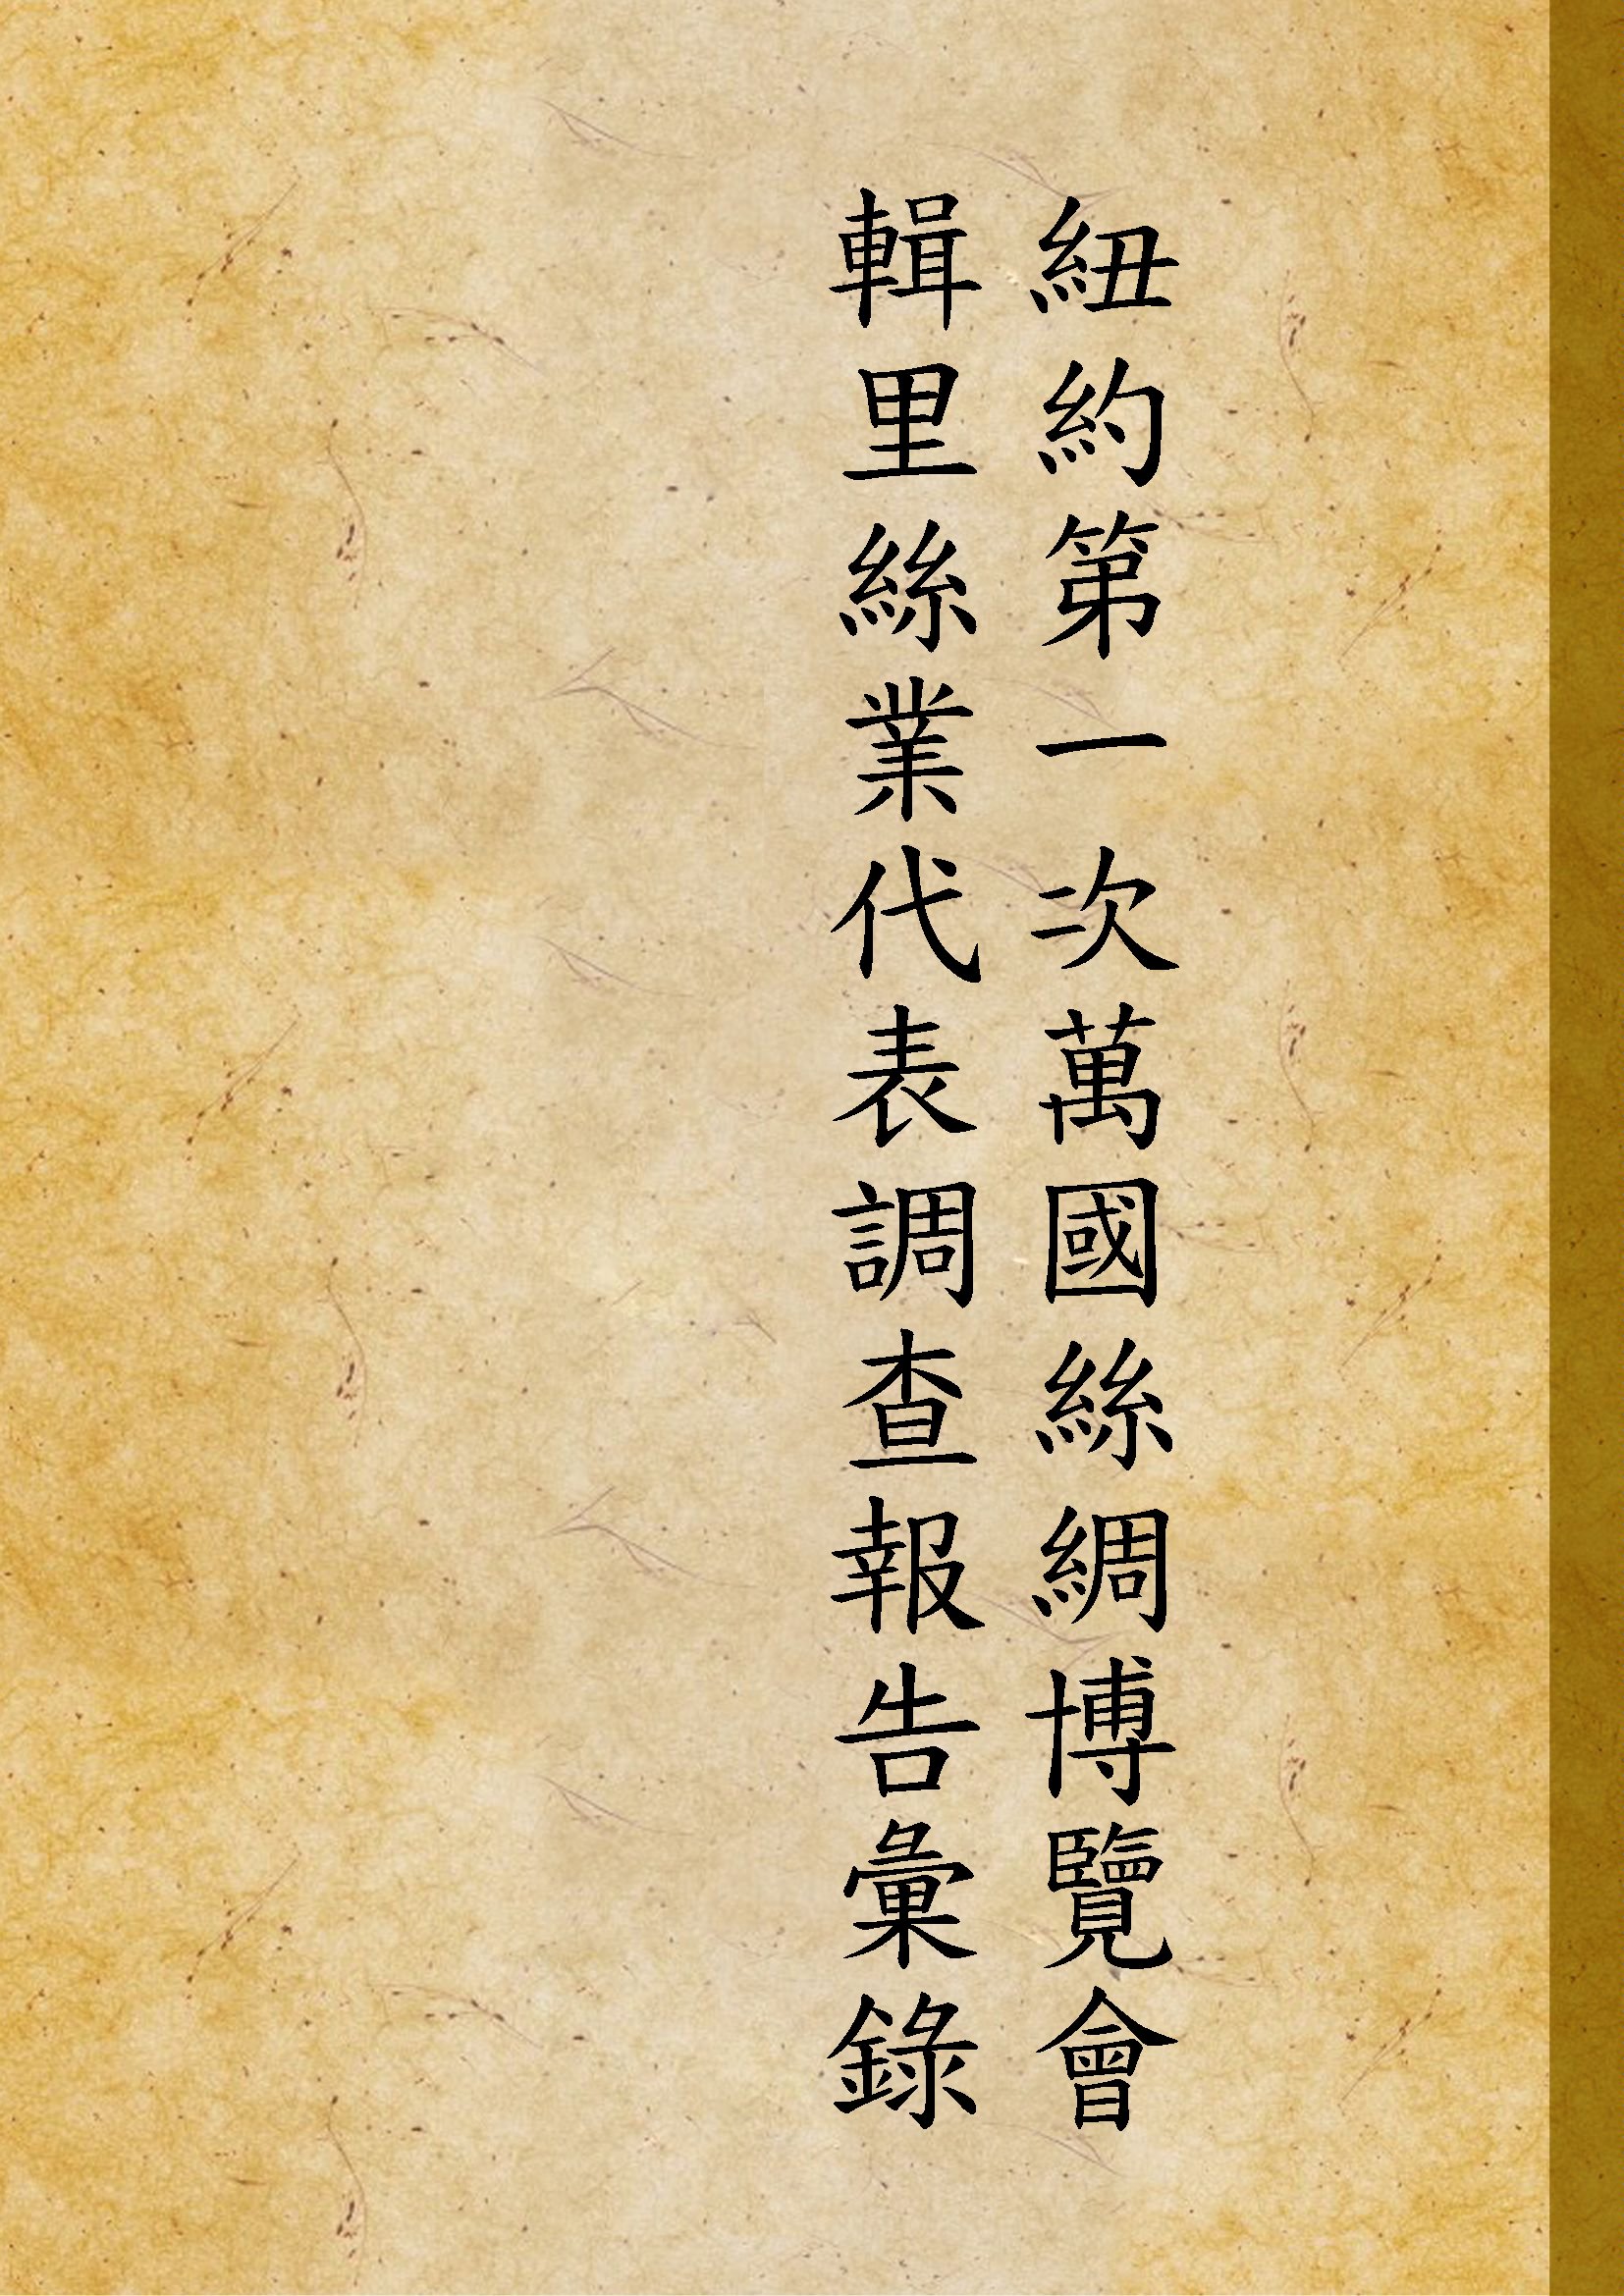 紐約第一次萬國絲綢博覽會
輯里絲業代表調查報告彙錄